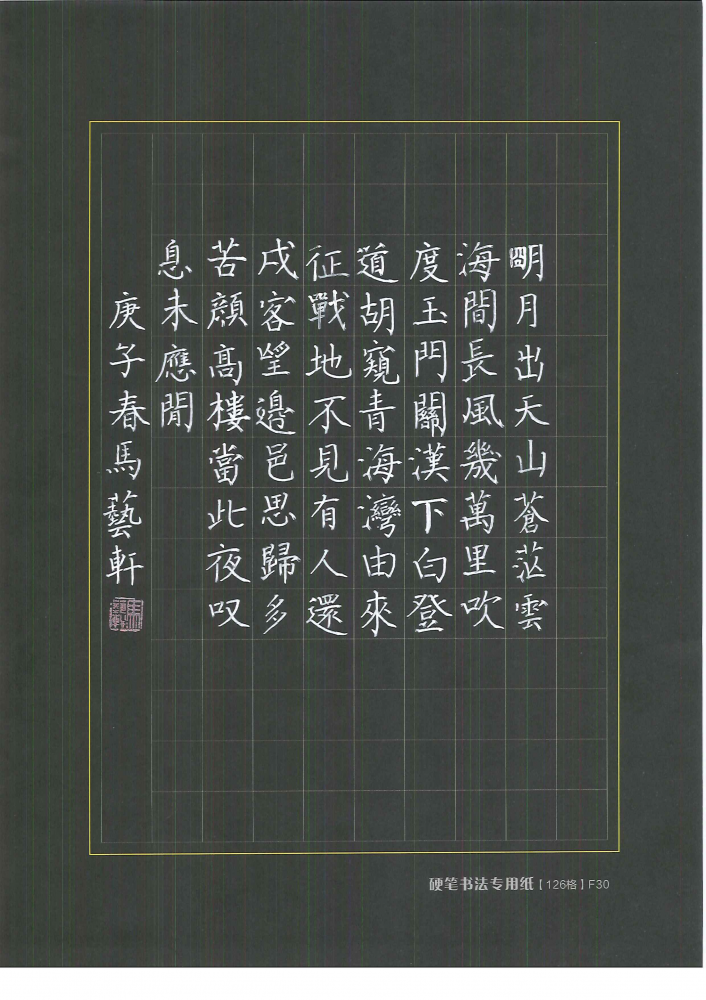 明月出天山蒼茫雲
海間長風幾萬里吹
度玉門關漢下白登
道胡窺青海灣由來
征戰地不見有人還
戍客望邊邑思歸多
苦顏高樓當此夜叹
息未應閒
庚子春馬藝軒
硬笔书法专用纸【126格】F30